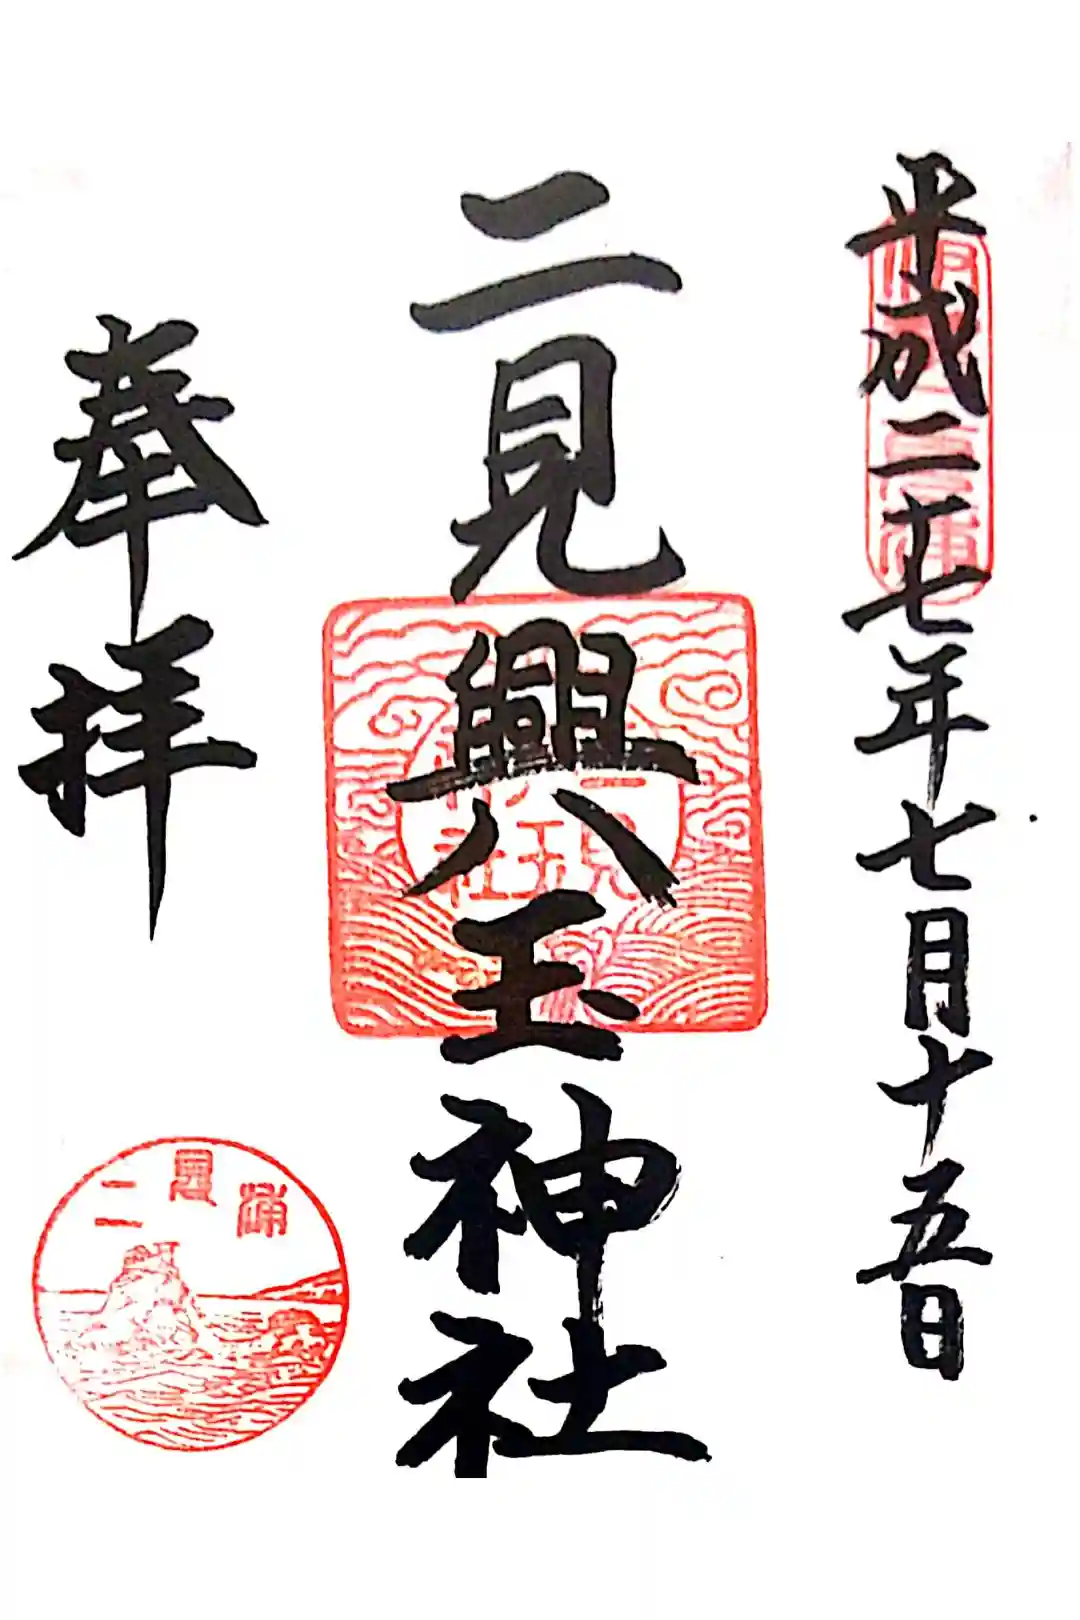 平成二十七年七月十五日
二見興玉神社
奉拝
二見浦